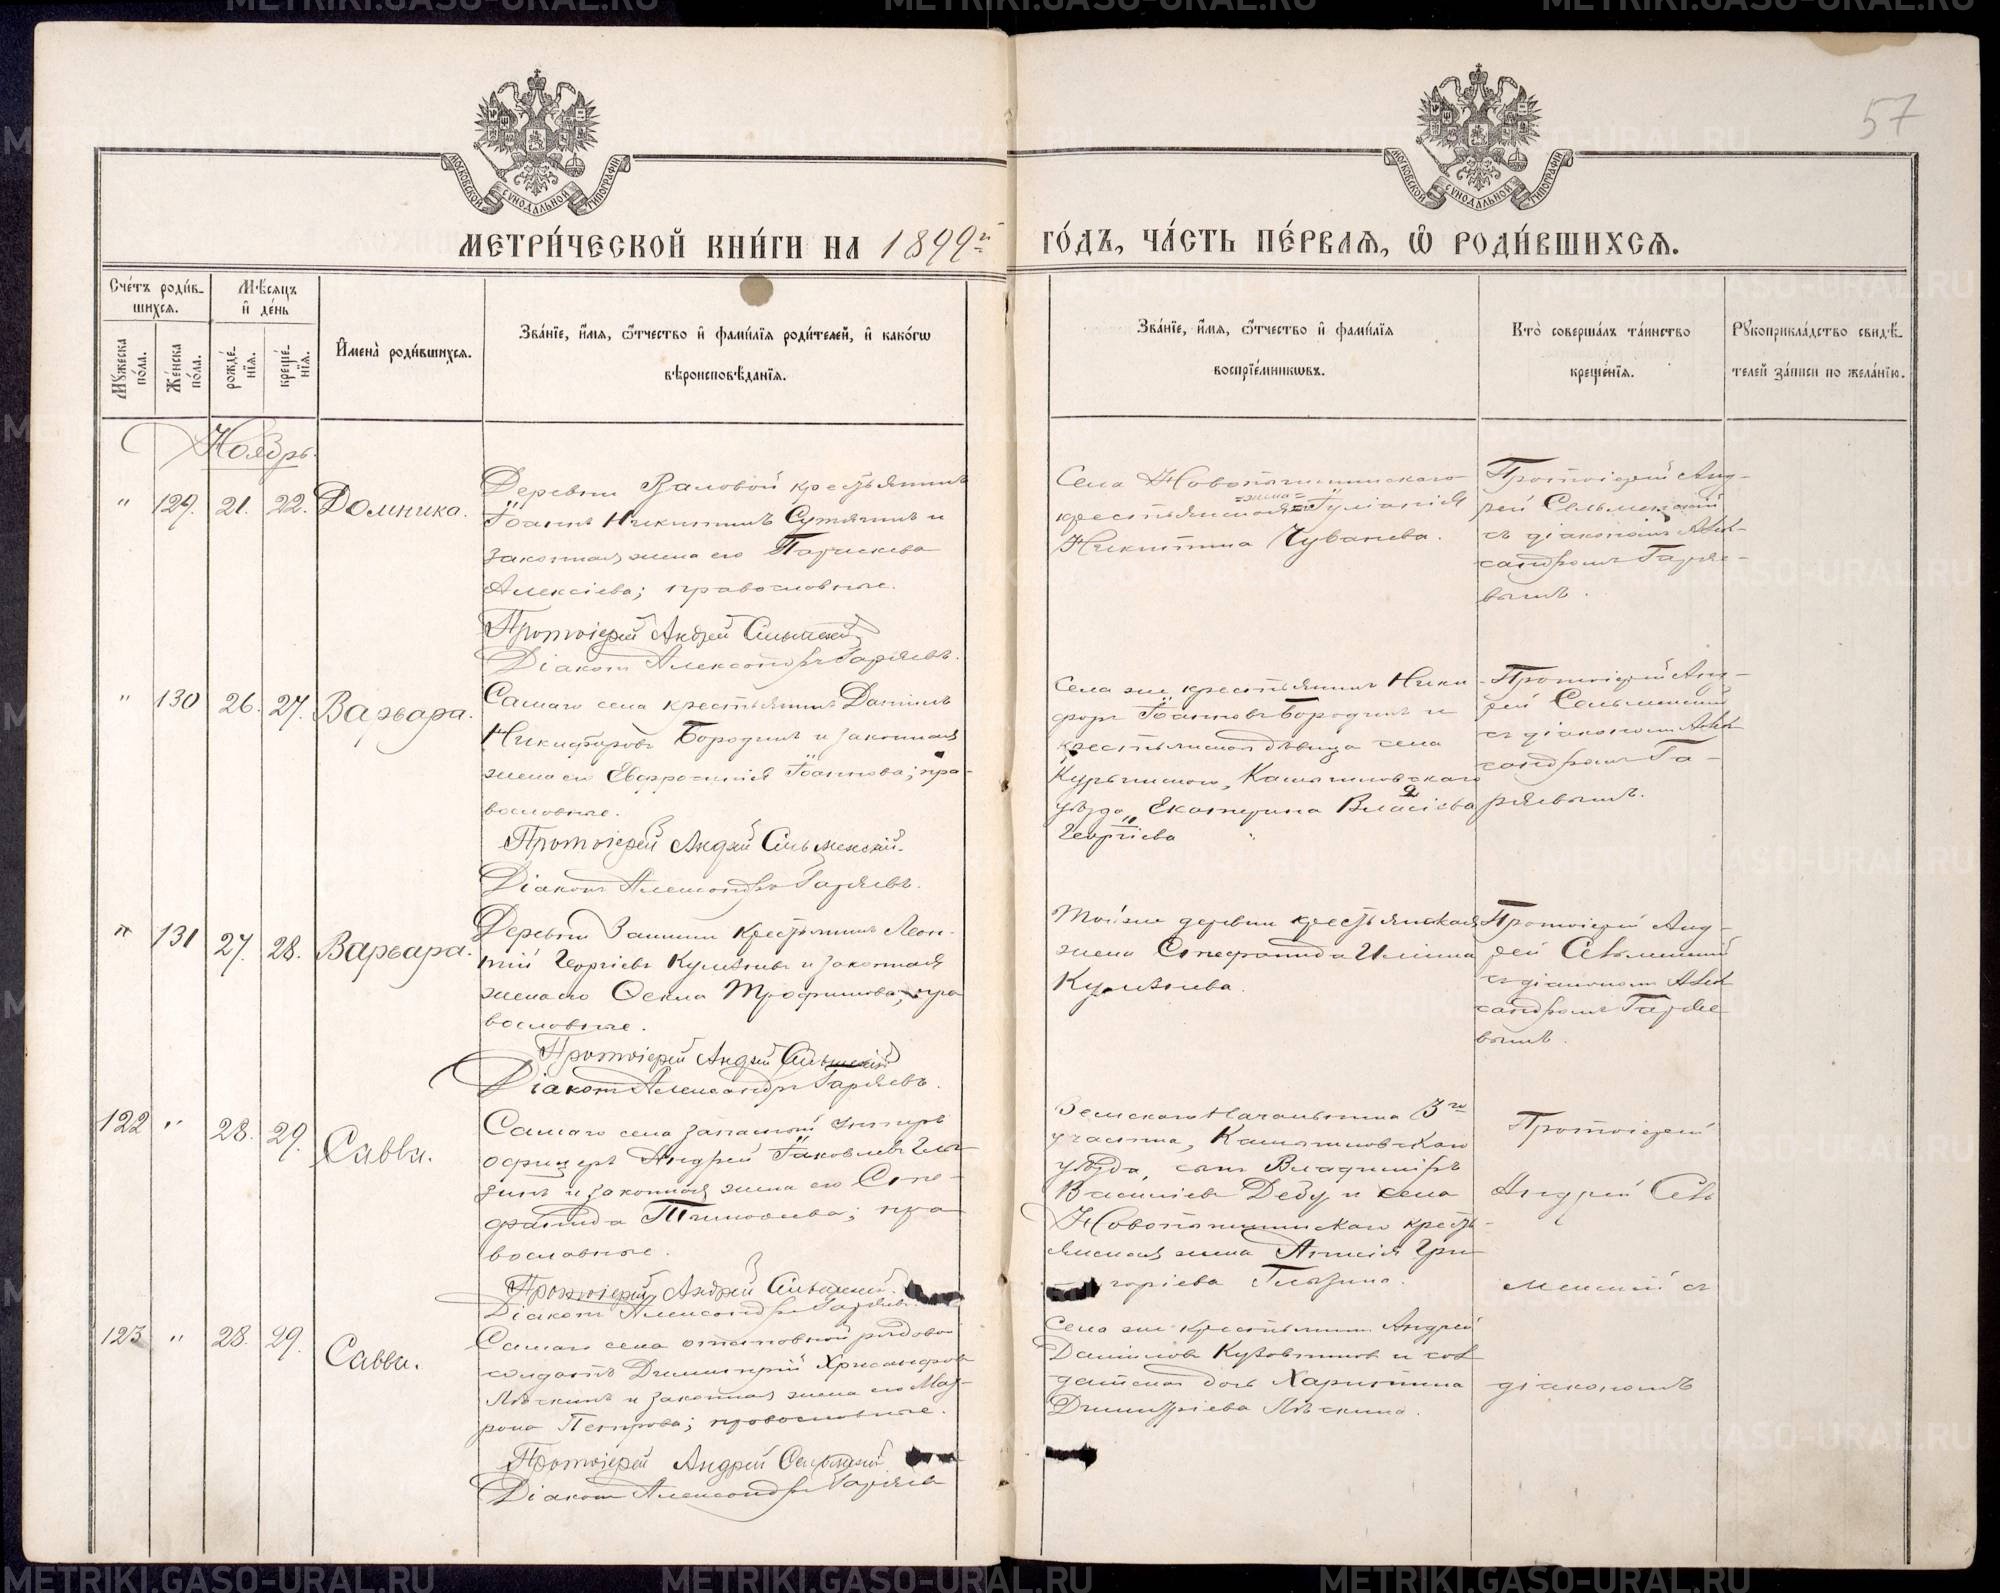 57
МОСКОВСКОЙ СУНОДАЛЬНОЙ ТИПОГРАФІИ
МОСКОВСКОЙ СУНОДАЛЬНОЙ ТИПОГРАФІИ
МЕТРИ́ЧЕСКОЙ КНИ́ГИ НА 1899й
ГО́ДЪ, ЧА́СТЬ ПЕ́РВАЯ, Ѡ РОДИ́ВШИХСЯ.
Сче́тъ роди́в-
шихся.
Мꙋ́жеска по́ла.
Же́нска по́ла.
Мѣ́сяцъ и҆ де́нь
рожде́-
нїя.
креще́-
нїя.
И҆мена̀ роди́вшихся.
Зва́нїе, и҆́мя, ѻ҆́тчество и҆ фами́лїя роди́телей, и҆ како́гѡ
вѣроисповѣ́данїя.
Зва́нїе, и҆́мя, ѻ҆́тчество и҆ фами́лїя
воспрїе́мникѡвъ.
Кто̀ соверша́лъ та́инство
креще́нїя.
Рꙋкоприкла́дство свидѣ́-
телей за́писи по жела́нїю.
Ноябрь.
" 129. 21. 22. Домника.
Деревни крестьянинъ
Іоаннъ Никитинъ и
законная жена его Параскева
Алексіева; православные.
Протоіерей Андрей Сельменскій
Діаконъ Александръ Гаряевъ.
Села Новопышминскаго
крестьянская =жена= Іуліанія
Никитина Чувашева.
Протоіерей Анд-
рей Сельменскій
съ діакономъ Алек-
сандромъ Гаряе-
вымъ.
" 130 26. 27. Варвара.
Самаго села крестьянинъ Даніилъ
Никифоровъ Бородинъ и законная
жена его Евфросинія Іоаннова; пра-
вославные.
Протоіерей Андрей Сельменскій.
Діаконъ Александръ Гаряевъ.
Села же крестьянинъ Ники-
форъ Іоанновъ Бородинъ и
крестьянская дѣвица села
Камышловскаго
уѣзда, Екатерина Власіева
Георгіева
Протоіерей Анд-
рей Сельменскій
съ діакономъ Алек-
сандромъ Га-
ряевымъ.
" 131 27. 28. Варвара.
Деревни Заимки крестьянинъ Леон-
тій Георгіевъ и законная
жена его Ѳекла Трофимова; пра-
вославные.
Протоіерей Андрей Сельменскій
Діаконъ Александръ Гаряевъ.
Той же деревни крестьянская
жена Стефанида Ильина
Протоіерей Анд-
рей Сельменскій
съ діакономъ Алек-
сандромъ Гаряе-
вымъ.
122 " 28. 29. Савва.
Самаго села запасной унтеръ
офицеръ Андрей Іаковлевъ Гла-
зинъ и законная жена его Сте-
фанида Тимоѳеева; пра-
вославные.
Протоіерей Андрей Сельменскій.
Діаконъ Александръ Гаряевъ.
Земскаго Начальника 3го
участка, Камышловскаго
уѣзда, сынъ Владиміръ
Васильевъ Дебу и села
Новопышминскаго кресть-
янская жена Гри-
горіева Глазина.
Протоіерей
Андрей Сель
менскій съ
123 " 28. 29. Савва.
Самаго села отставной рядовой
солдатъ Димитрій Хрисанфовъ
и законная жена его Мат-
рона Петрова; православные.
Протоіерей Андрей Сельменскій
Діаконъ Александръ Гаряевъ
Села же крестьянинъ Андрей
Даниловъ и сол-
датская дочь Харитина
Димитріева
діакономъ
METRIKI.GASO-URAL.RU